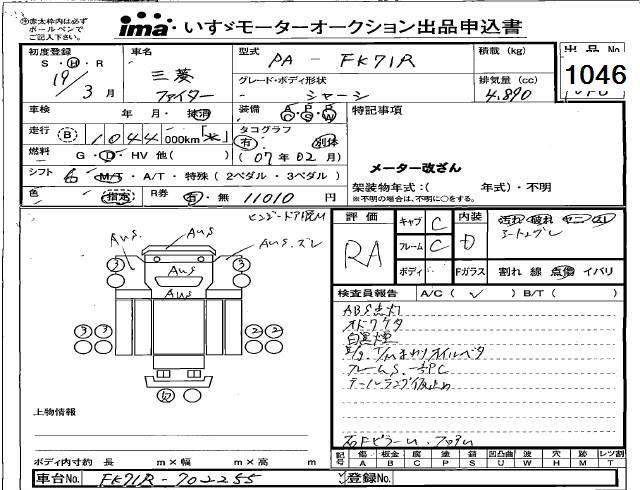 ※赤太枠内は必ず
ボールペンで
ご記入下さい。
ima いすゞモーターオークション出品申込書
初度登録
S・H・R
19/3 月
車名
三菱
ファイター
型式
PA - FK71R
グレード・ボディ形状
シャーシ
積載 (kg)
排気量 (cc)
4.890
出品No
1046
車検
年 月・抹消
装備
A P R
C S W
特記事項
走行
B
1044 000km
タコグラフ
有 別体
(07年02月)
メーター改ざん
燃料
G・D・HV 他( )
シフト
6 M/S・A/T・特殊(2ペダル・3ペダル)
架装物年式:( 年式)・不明
※不明の場合は、不明に○をする。
色
指定
R券
有・無 11010 円
Aus
Aus
Aus. ズレ
Aus
3
3
3
3
2
2
上物情報
ボディ内寸約 長 m×幅 m×高 m
車台No.
FK71R-702255
評価
RA
キャブ C
フレーム C
ボディ
内装
D
Fガラス
汚れ 破れ
シートズレ
割れ 線 点傷 イバリ
検査員報告
A/C( ✓ ) B/T( )
ABS点灯
オドケタ
白黒煙
E/g. T/Mまわりオイルベタ
フレームS.
テールランプ仮止め
記号
傷 A
板金 B
腐 C
塗 P
錆 S
凹凸曲 U
波 W
穴 H
跡 M
レツ割 T
登録No.